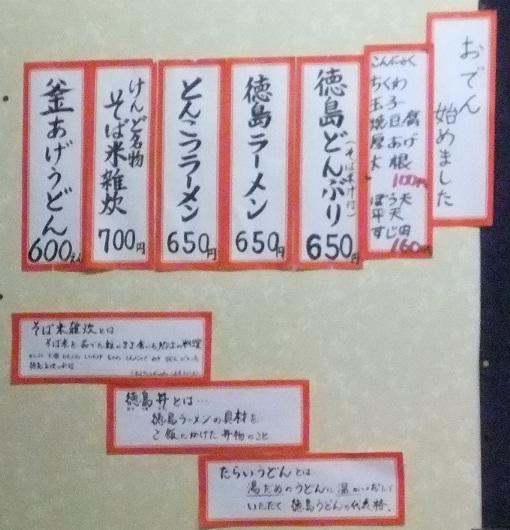 おでん
始めました
こんにゃく
ちくわ
玉子
焼豆腐
厚あげ
大根
100円
ぼう天
平天
すじ肉
160円
徳島どんぶり
650円
徳島ラーメン
650円
とんこつラーメン
650円
けんど名物
そば米雑炊
700円
釜あげうどん
600えん
そば米雑炊とは
徳島丼とは…
徳島ラーメンの具材を
ご飯にかけた丼物のこと
たらいうどんとは
湯だめのうどんに
いただく 徳島うどんの代表格。